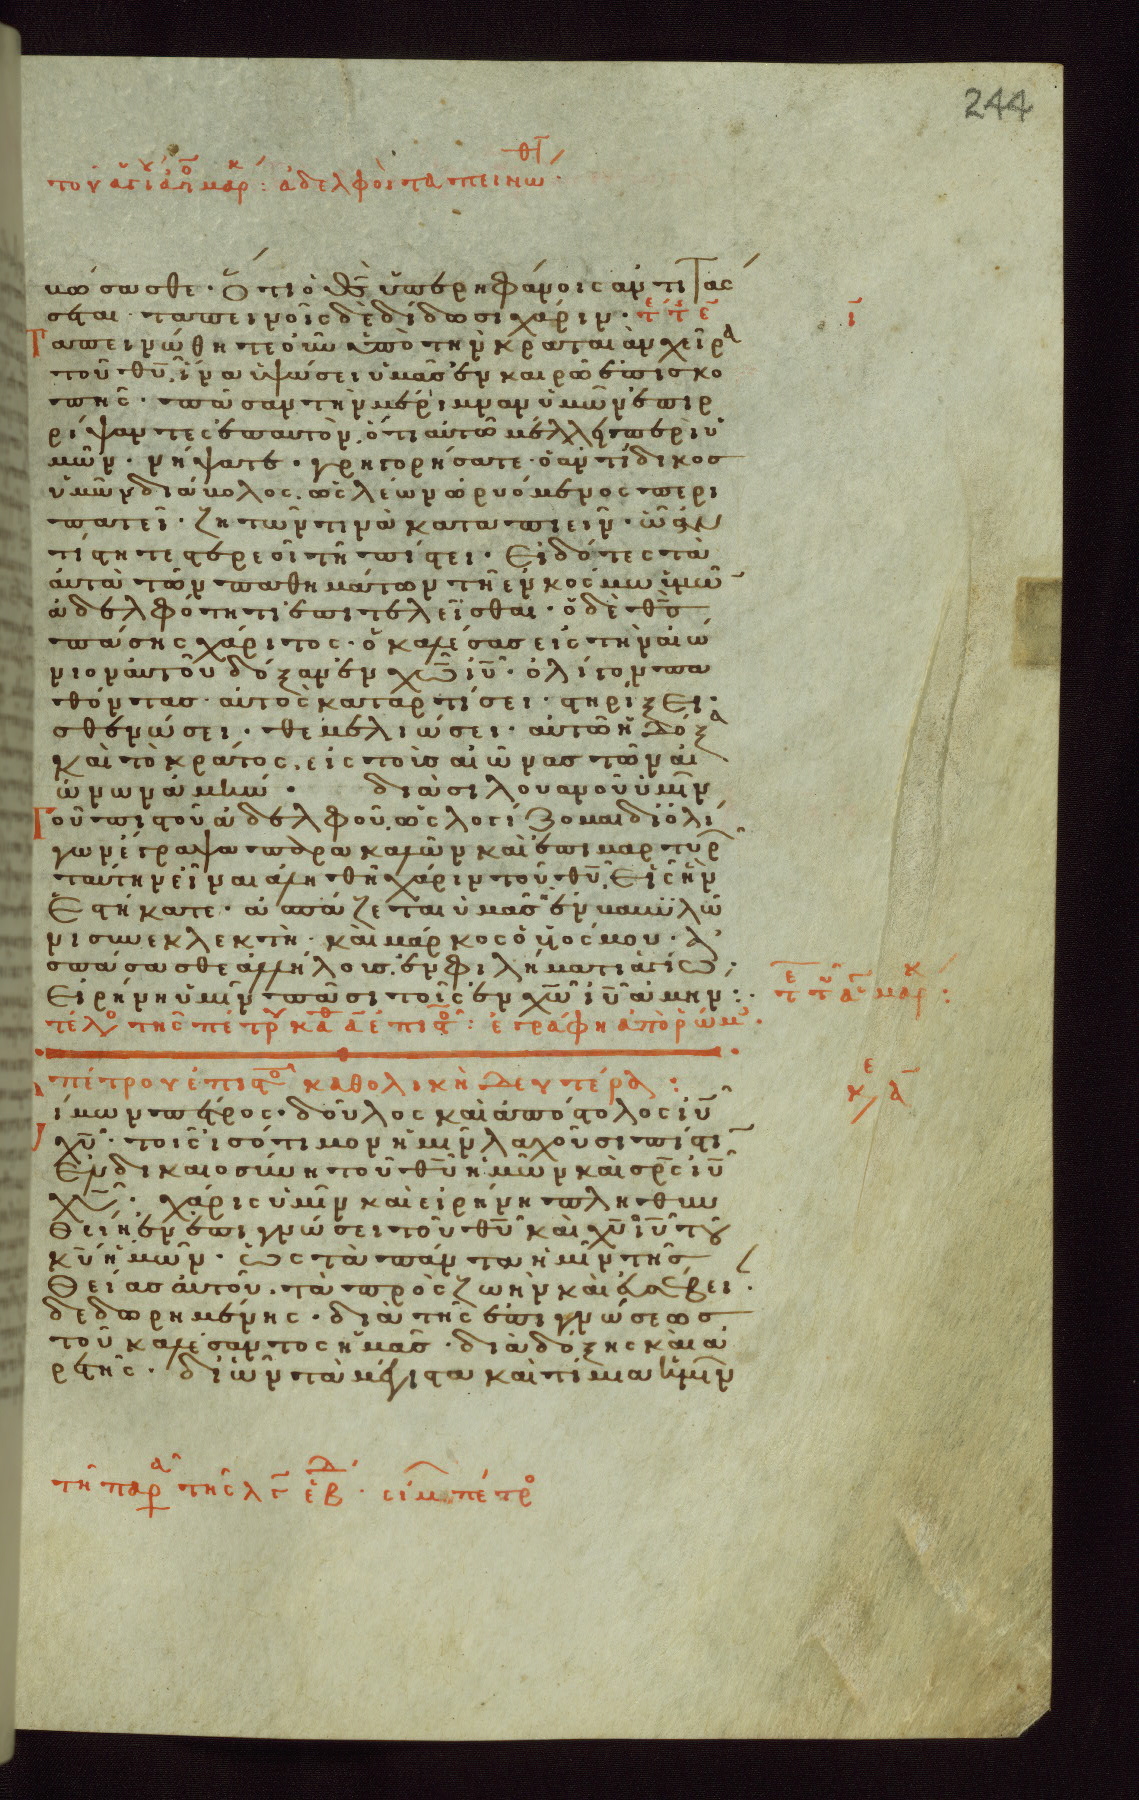 244
τοῦ ἁγί ἀπ μαρκ : ἀδελφοὶ ταπεινώθητ
κώσασθε · Ὅτι ὁ θς ὑπερηφάνοις ἀντιτάσ
σεται · ταπεινοῖς δὲ δίδωσι χάριν · τε τ ε
Ταπεινώθητε οὖν ὑπὸ τὴν κραταιὰν χεῖρα
τοῦ θυ, ἵνα ὑψώσει ὑμᾶς ἐν καιρῶ ἐπισκο
πῆς · πᾶσαν τὴν μέριμναν ὑμῶν ἐπιρ
ρίψαντες ἐπ αυτὸν, ὅτι αὐτῶ μέλλει περι ὑ
μῶν · νήψατε · γρηγορήσατε · ὁ ἀντίδικος
ὑμῶν διάβολος, ὡς λέων ὠρυόμενος περι
πατεῖ · ζητῶν τινὰ καταπιεῖν · ὧ ἀν
τίστητε στερεοὶ τῆ πίστει · Εἰδότες τὰ
αὐτὰ τῶν παθημάτων τῆ ἐν κόσμω ὑμῶ
ἀδελφότητι ἐπιτελεῖσθαι · ὁ δὲ θς
πάσης χάριτος · ὁ καλέσας εἰς τὴν αἰώ
νιον αὐτοῦ δόξαν ἐν χω ιυ · ὀλίγον πα
θόντας · αὐτὸς καταρτίσει · στηρίξει ·
σθενώσει · θεμελιώσει · αὐτῶ ἡ δόξα
καὶ τὸ κράτος, εἰς τοὺς αἰῶνας τῶν αἰ
ώνων ἀμήν · διὰ σιλουανοῦ ὑμῖν
τοῦ πιστοῦ ἀδελφοῦ, ὡς λογίζομαι δι ὀλί
γων ἔγραψα παρακαλῶν καὶ ἐπιμαρτυρ
ταύτην εἶναι ἀληθῆ χάριν τοῦ θυ, Εἰς ἣν
Ἑστήκατε · ἀσπάζεται ὑμᾶς ἐν βαβυλῶ
νι συνεκλεκτὴ · καὶ μάρκος ὁ υἱός μου · ἀ
σπάσασθε ἀλλήλους, ἐν φιλήματι ἁγίω ·
Εἰρήνη ὑμῖν πᾶσι τοῖς ἐν χω ιυ ἀμήν :
τε τοῦ ἁγ μαρκ :
τέλος τῆς πέτρου καθ α ἐπιστο : ἐγράφη ἀπὸ ρώμ
πέτρου ἐπιστο καθολικὴ δευτέρα :
ίμων πέτρος · δοῦλος καὶ ἀπόστολος ιυ
χυ · τοῖς ἰσότιμον ἡμῖν λαχοῦσι πίστι
Ἐν δικαιοσύνη τοῦ θυ ἡμῶν καὶ σρς ιυ
χυ · χάρις ὑμῖν καὶ εἰρήνη πληθυν
θείη ἐν ἐπιγνώσει τοῦ θυ καὶ χυ ιυ τοῦ
κυ ἡμῶν · Ὡς τὰ πάντα ἡμῖν τῆς
θείας αὐτοῦ · τὰ πρὸς ζωὴν καὶ εὐσέβει ·
δεδωρημένης · διὰ τῆς ἐπιγνώσεως
τοῦ καλέσαντος ἡμᾶς · διὰ δόξης καὶ ἀ
ρετῆς · δι ὧν τὰ μέγιστα καὶ τίμια ἡμῖν
τῆ παρα τῆς λγ ἑβδ · σίμ πέτρο